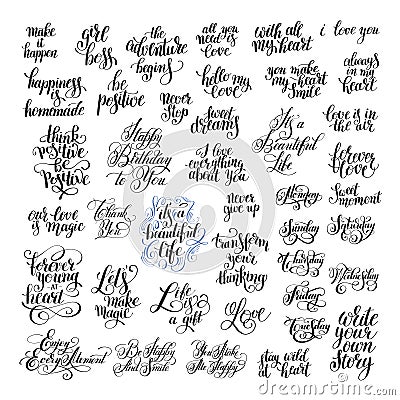 make
it
happen
girl
boss
the
adventure
begins
all
you
need is
love
with all
my heart
i love you
happiness
is
homemade
be
positive
never
stop
hello my
love
you make
my heart
smile
always
in my
heart
think
positive
be
positive
Happy
Birthday
to You
sweet
dreams
It's a
Beautiful
Life
love is in
the air
I love
everything
about you
forever
love
our love
is magic
Thank
You
it's a
beautiful
life
never
give up
Monday
Sweet
moment
Sunday
Saturday
transform
your
thinking
Thursday
Wednesday
forever
young
AT
heart
Let's
make
magic
Life
is
a gift
Love
Friday
Tuesday
write
your
own
story
Enjoy
Every Moment
Be Happy
And Smile
You Make
Me Happy
stay wild
at heart
dreamstime